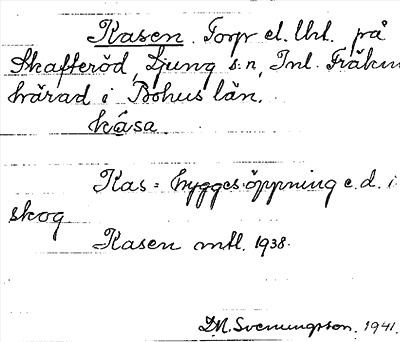 Kasen. Torp el. lht. på
Skafteröd, Ljung s:n, Inl. Fräkne
härad i Bohus län.
kåsa.
Kas = hyggesöppning e.d. i
skog
Kasen mtl. 1938.
D.N. Svenungsson. 1941.